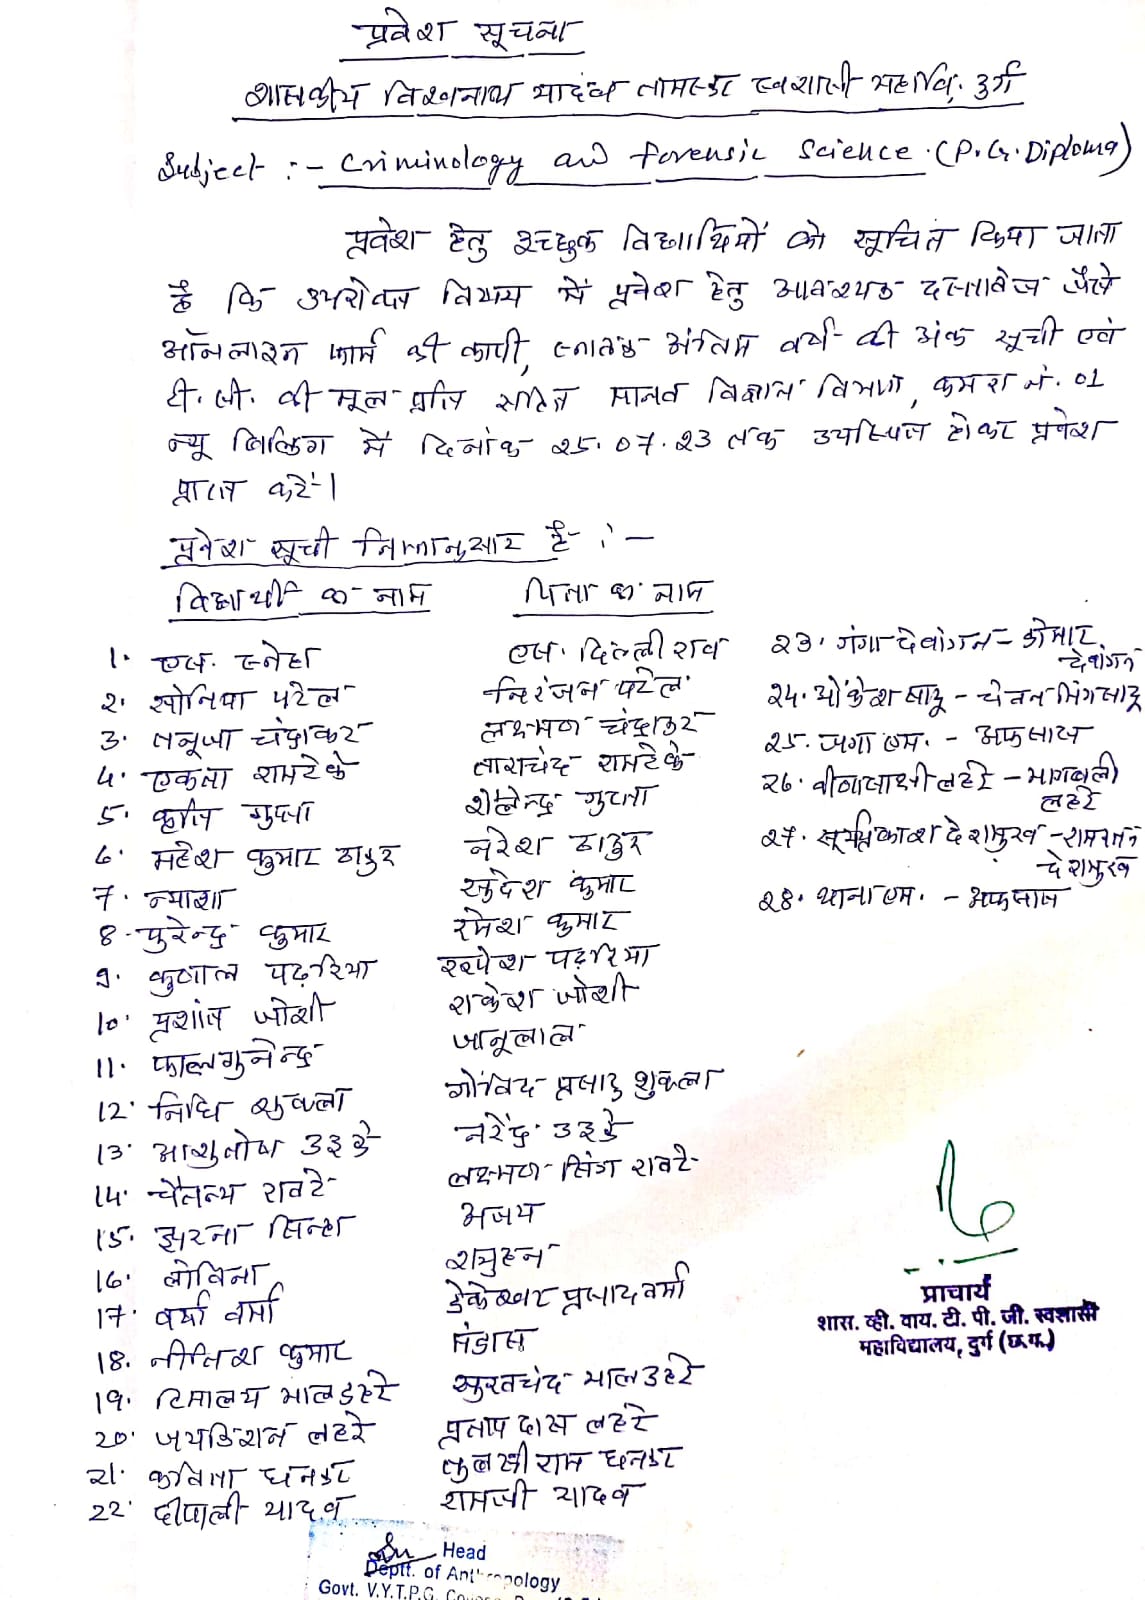 प्रवेश सूचना
शासकीय विश्वनाथ यादव तामस्कर स्वशासी महावि. दुर्ग
Subject :- Criminology and forensic Science. (P.G. Diploma)
प्रवेश हेतु इच्छुक विद्यार्थियों को सूचित किया जाता
है कि उपरोक्त विषय में प्रवेश हेतु आवश्यक दस्तावेज जैसे
ऑनलाइन फार्म की कापी, स्नातक अंतिम वर्ष की अंक सूची एवं
टी.सी. की मूल प्रति सहित मानव विज्ञान विभाग, कमरा नं. 01
न्यू बिल्डिंग में दिनांक 25.07.23 तक उपस्थित होकर प्रवेश
प्राप्त करें।
प्रवेश सूची निम्नानुसार है :-
विद्यार्थी का नाम पिता का नाम
1. एस. स्नेहा एस. दिल्ली राव
2. सोनिया पटेल निरंजन पटेल
3. तनूजा चंद्राकर लक्ष्मण चंद्राकर
4. एकता रामटेके ताराचंद रामटेके
5. गुप्ता शैलेन्द्र गुप्ता
6. महेश कुमार ठाकुर नरेश ठाकुर
7. न्याशा सुदेश कुमार
8. पुरेन्द्र कुमार रमेश कुमार
9. कुणाल पढ़रिया रूपेश पढ़रिया
10. प्रशांत जोशी राकेश जोशी
11. फाल्गुनेन्द्र जानूलाल
12. निधि शुक्ला गोविंद प्रसाद शुक्ला
13. आशुतोष उइके नरेंद्र उइके
14. चैतन्य रावटे लक्ष्मण सिंग रावटे
15. झरना सिन्हा अजय
16. लोविना शत्रुहन
17. वर्षा वर्मा डेकेश्वर प्रसाद वर्मा
18. नीतिश कुमार
19. हिमालय मालडहरे सुरतचंद मालडहरे
20. जयकिशन लहरे प्रताप दास लहरे
21. कविता धनकर तुलसी राम धनकर
22. दीपाली यादव रामजी यादव
23. गंगा देवांगन - कोमार
देवांगन
24. ओंकेश साहू - चेतन सिंग साहू
25. जगा एम. - अफलास
26. वीणासाक्षी लहरे - भागबली
लहरे
27. सूर्यप्रकाश देशमुख - रामरतन
देशमुख
28. थाना एम. - अफलास
प्राचार्य
शास. व्ही. वाय. टी. पी. जी. स्वशासी
महाविद्यालय, दुर्ग (छ.ग.)
Head
Deptt. of Anthropology
Govt. V.Y.T.P.G.